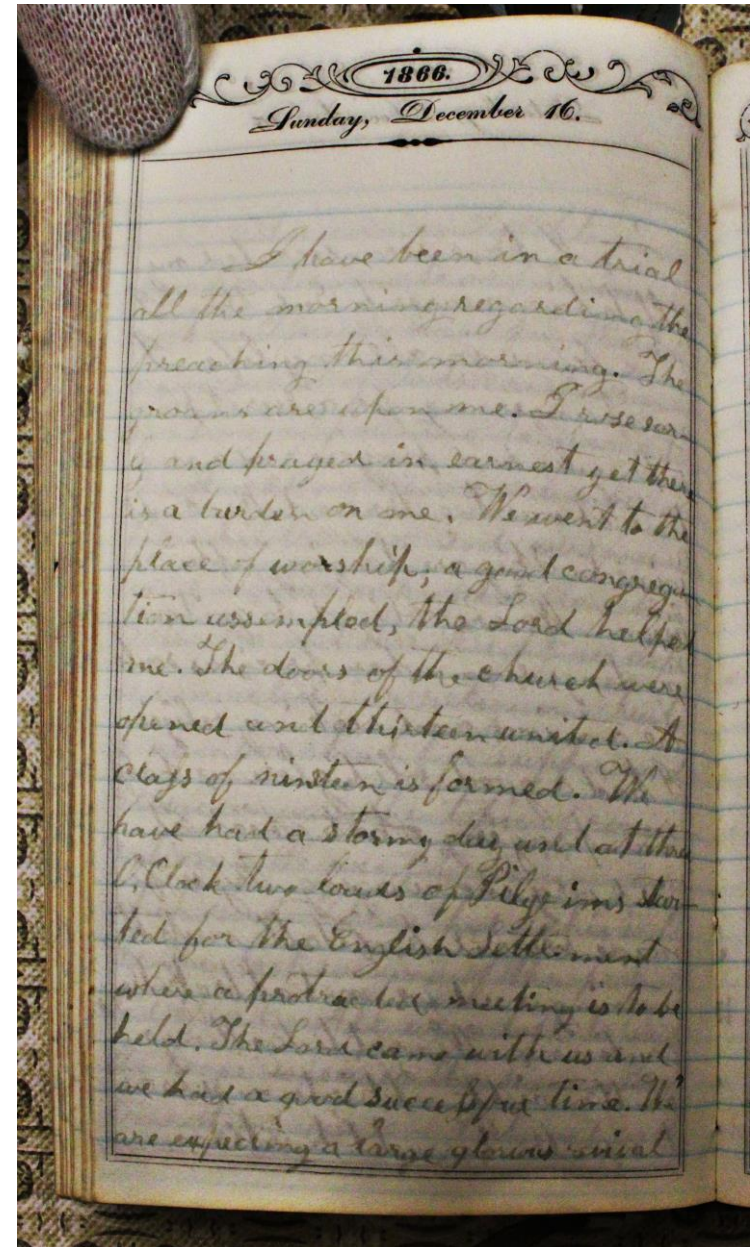 1866.
Sunday, December 16.
I have been in a trial
all the morning regarding the
preaching this morning. The
groans are upon me. I rose ear-
ly and prayed in earnest yet there
is a burden on me. We went to the
place of worship, a good congrega-
tion assempled, the Lord helped
me. The doors of the church were
opened and thirteen united. A
class of ninsteen is formed. We
have had a stormy day and at three
O, Clock two loads of Pilgrims star-
ted for the English Settlement
where a protracted meeting is to be
held. The Lord came with us and
we had a good time. We
are expecting a large glorious